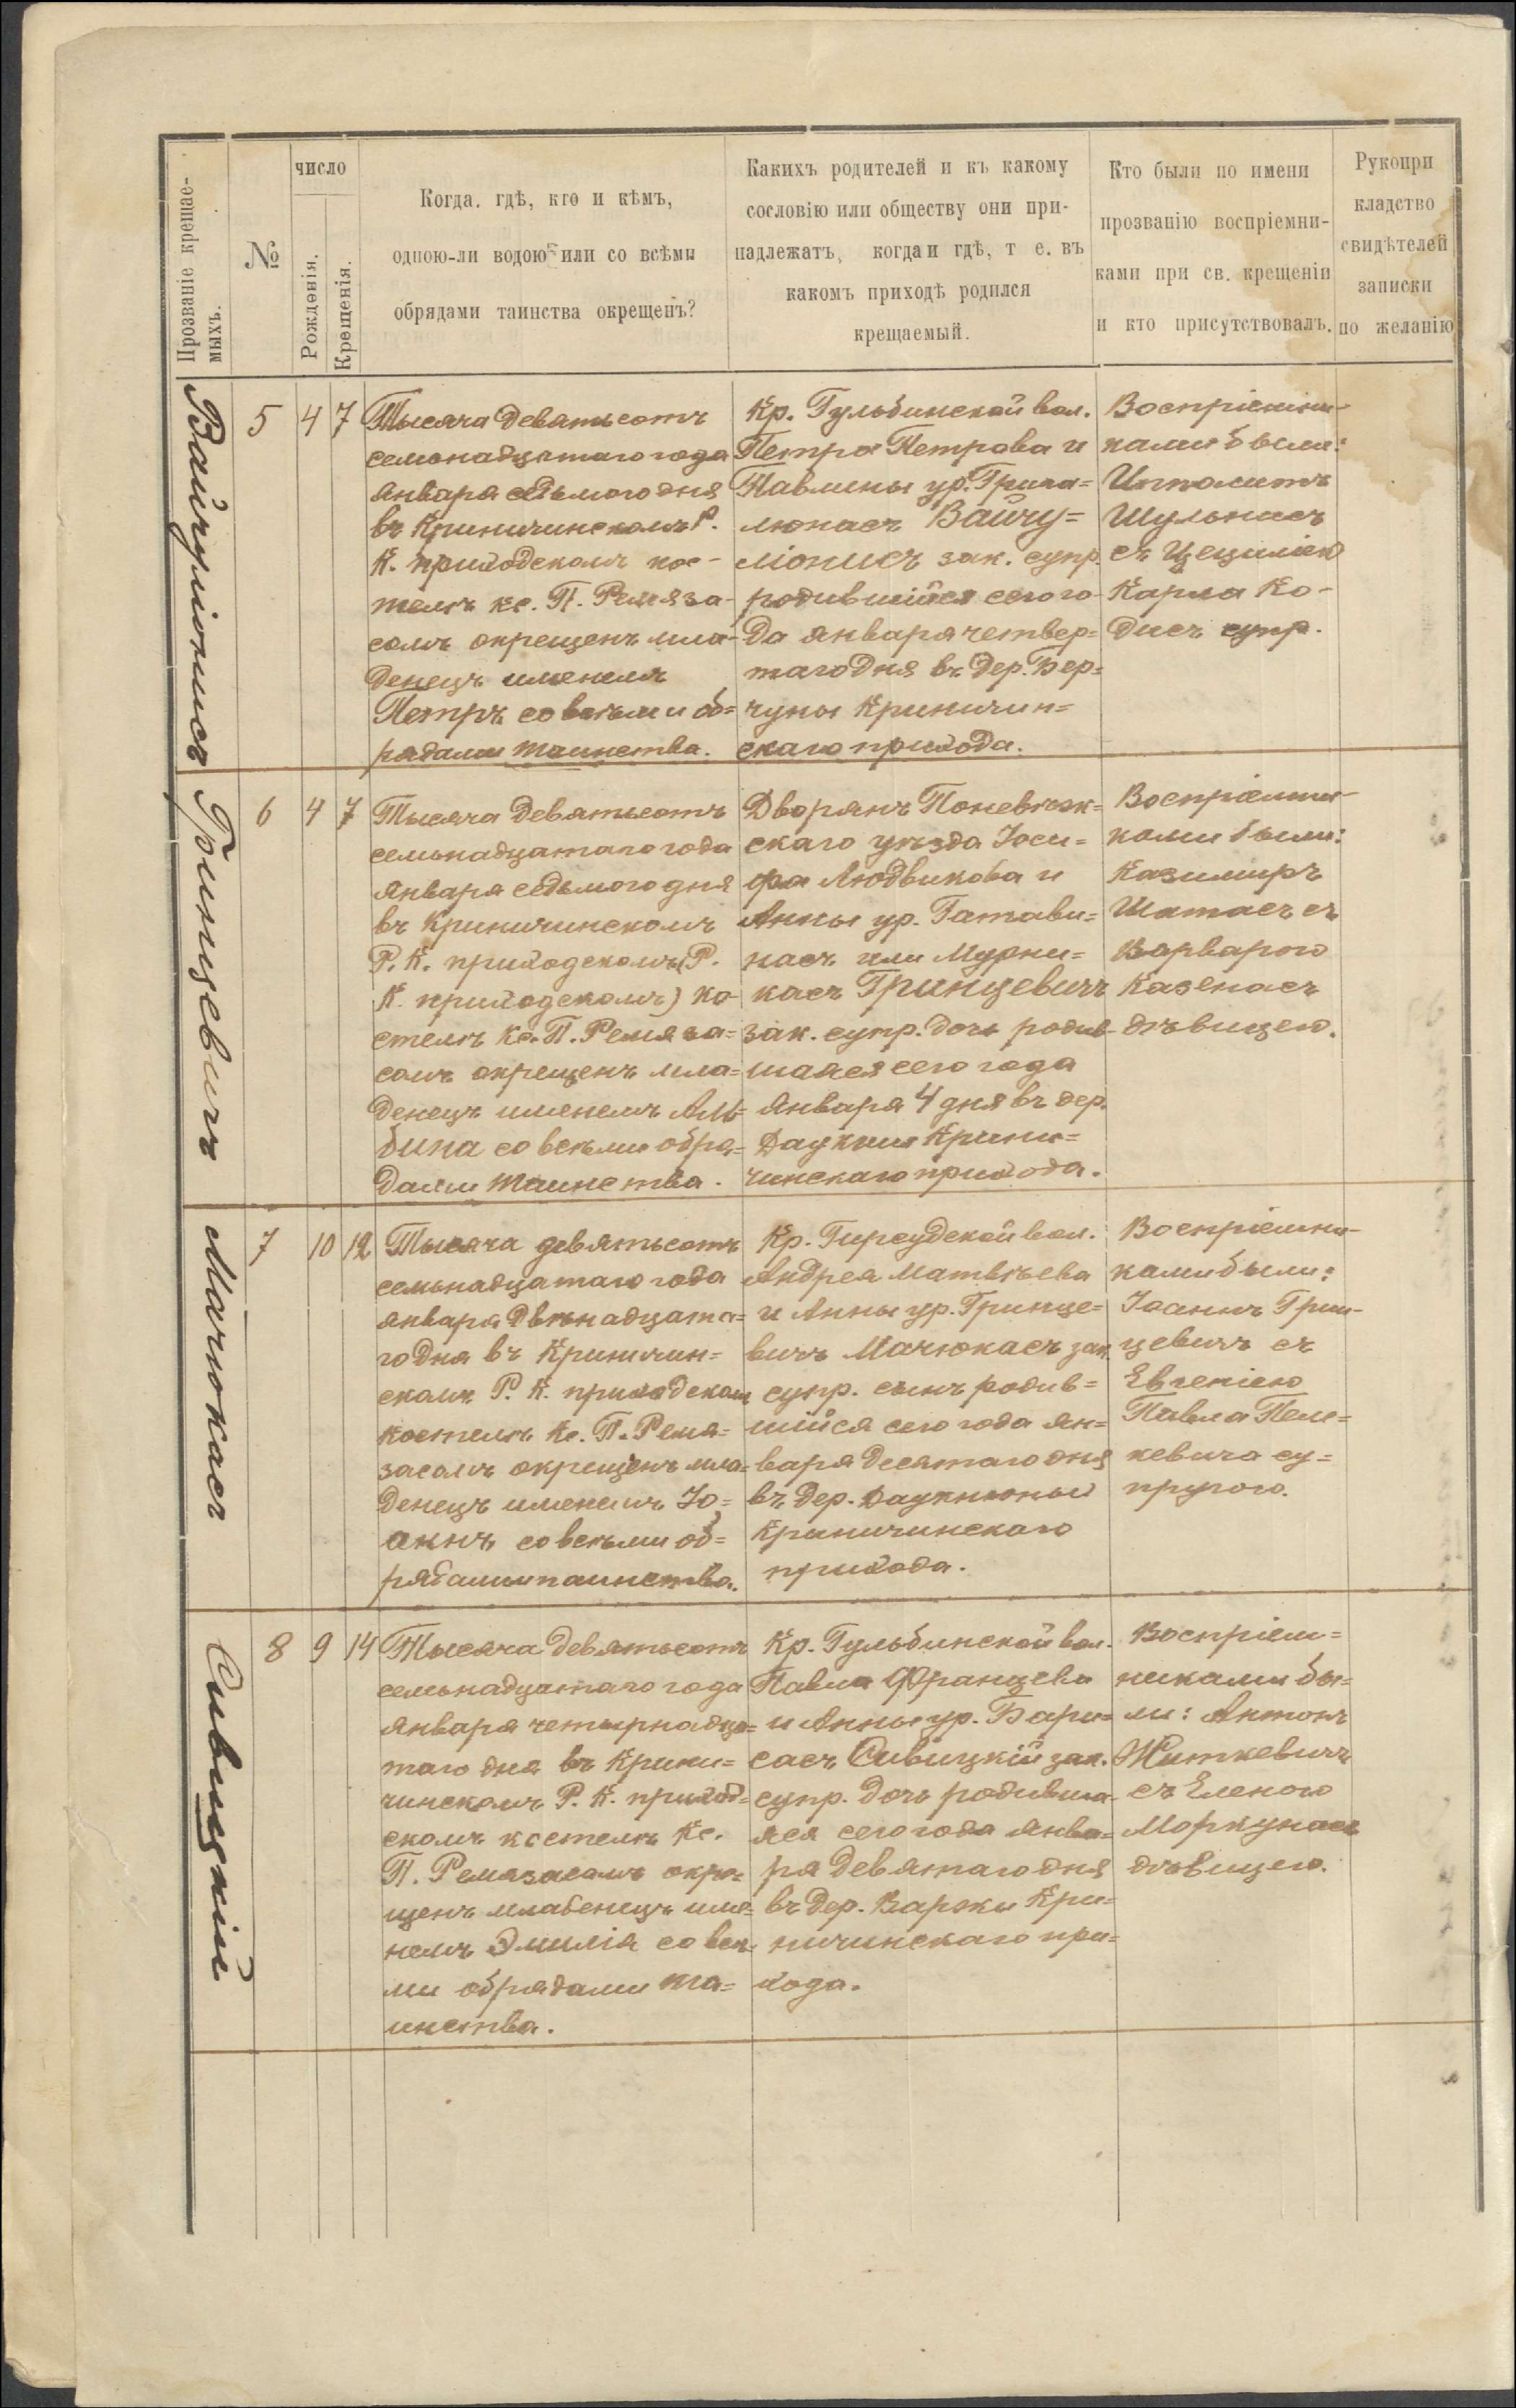 Прозваніе крещае-
мыхъ.
№
число
Рожденія.
Крещенія.
Когда. гдѣ, кто и кѣмъ,
одною-ли водою или со всѣми
обрядами таинства окрещенъ?
Какихъ родителей и къ какому
сословію или обществу они при-
надлежатъ, когда и гдѣ, т е. въ
какомъ приходѣ родился
крещаемый.
Кто были по имени
прозванію воспріемни-
ками при св. крещеніи
и кто присутствовалъ.
Рукопри
кладство
свидѣтелей
записки
по желанію
Вайчуліонисъ
5
4
7
Тысяча девятьсотъ
семьнадцатаго года
января седьмого дня
въ Криничинскомъ Р.
К. приходскомъ кос-
телѣ кс. П. Ремяза-
сомъ окрещенъ мла-
денецъ именемъ
Петръ со всѣми об=
рядами таинства.
Кр. Гульбинской вол.
Петра Петрова и
Павлины ур. Грига=
люнасъ Вайчу=
ліонисъ зак. супр.
родившійся сего го-
да января четвер=
таго дня въ дер. Бер=
чуны Криничин=
скаго прихода.
Воспріемни-
ками были:
Ипполитъ
Шульнасъ
съ Цециліею
Карла Ко-
дисъ супр.
Гринцевичъ
6
4
7
Тысяча девятьсотъ
семьнадцатаго года
января седьмого дня
въ Криничинскомъ
Р. К. приходскомъ (Р.
К. приходскомъ) ко-
стелѣ Кс. П. Ремяза=
сомъ окрещенъ мла=
денецъ именемъ Аль=
бина со всѣми обря=
дами таинства.
Дворянъ Поневѣж=
скаго уѣзда Іоси=
фа Людвикова и
Анны ур. Гатави=
насъ или Мурни=
касъ Гринцевичъ
зак. супр. дочь родив-
шаяся сего года
января 4 дня въ дер.
Даукни Крини=
чинскаго прихода.
Воспріемни-
ками были:
Казиміръ
Шатасъ съ
Варварою
Казенасъ
дѣвицею.
Мачюкасъ
7
10
12
Тысяча девятьсотъ
семьнадцатаго года
января двѣнадцата=
го дня въ Криничин=
скомъ Р. К. приходскомъ
костелѣ Кс. П. Ремя=
засомъ окрещенъ мла=
денецъ именемъ Іо=
аннъ со всѣми об=
рядами таинства.
Кр. Гирсудской вол.
Андрея Матвѣева
и Анны ур. Гринце=
вичъ Мачюкасъ зак.
супр. сынъ родив=
шійся сего года ян=
варя десятаго дня
въ дер. Даукнюны
Криничинскаго
прихода.
Воспріемни-
ками были:
Іоаннъ Грин-
цевичъ съ
Евгеніею
Павла Пеле=
кевича су=
пругою.
Сивицкій
8
9
14
Тысяча девятьсотъ
семьнадцатаго года
января четырнадца=
таго дня въ Крини=
чинскомъ Р. К. приход=
скомъ костелѣ Кс.
П. Ремязасомъ окре=
щенъ младенецъ име=
немъ Эмилія со всѣ=
ми обрядами та=
инства.
Кр. Гульбинской вол.
Павла Францева
и Анны ур. Бари=
сасъ Сивицкій зак.
супр. дочь родивша-
яся сего года янва=
ря девятаго дня
въ дер. Варжи Кри=
ничинскаго при=
хода.
Воспріем=
никами бы=
ли: Антонъ
Житкевичъ
съ Еленою
Моркунасъ
дѣвицею.